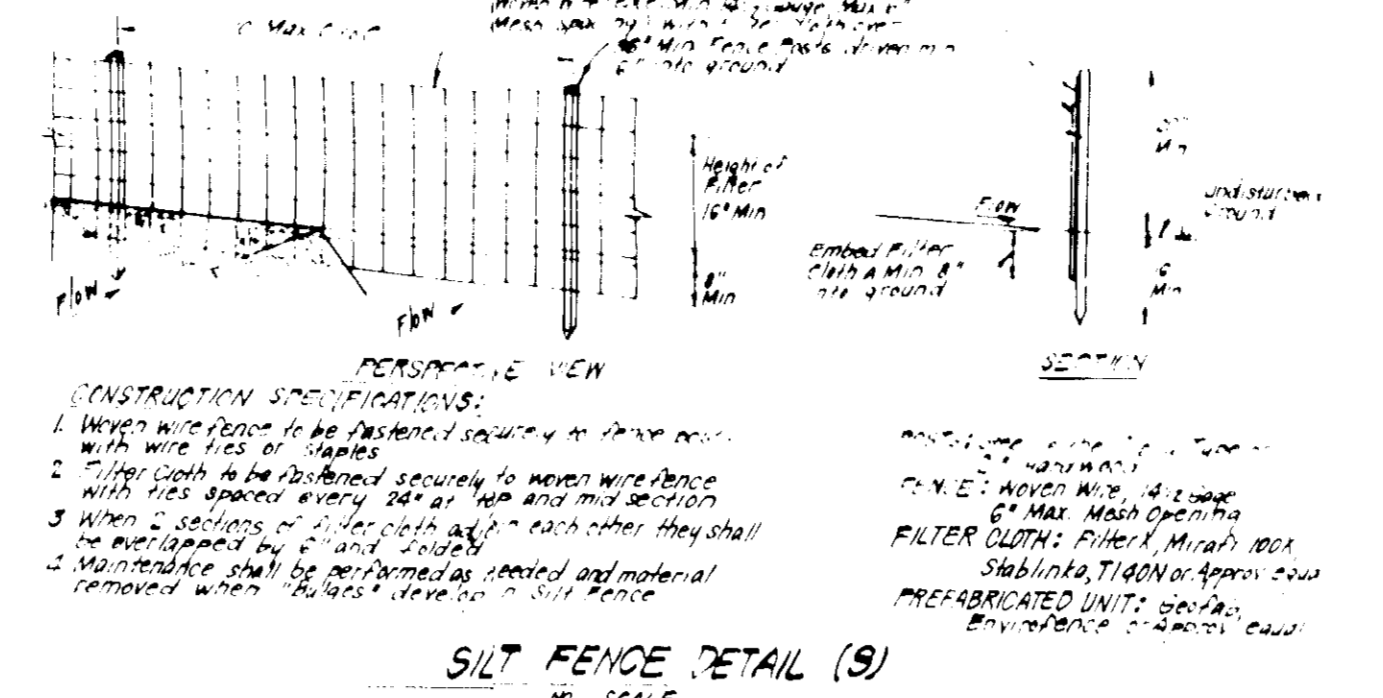 Mesh
36" Min. Fence Posts driven min
into ground
Height of
Filter
16" Min
8"
Min
Flow
Flow
Flow
Embed Filter
Cloth A Min. 8"
into ground
Min
Undisturbed
Ground
16
Min
PERSPECTIVE VIEW
SECTION
CONSTRUCTION SPECIFICATIONS:
1. Woven wire fence to be fastened securely to fence
with wire ties or staples
2 Filter Cloth to be fastened securely to woven wire fence
with ties spaced every 24" at top and mid section
3 When 2 sections of filter cloth adjoin each other they shall
be overlapped by 6" and folded
4 Maintenance shall be performed as needed and material
removed when "Bulges" develop in Silt Fence
Hardwood
FENCE: Woven Wire, 14½ Gage
6" Max. Mesh Opening
FILTER CLOTH: Filter X, Mirafi 100X,
Stablinka, T140N or Approv equal
PREFABRICATED UNIT: Geofab,
Envirofence or Approv equal
SILT FENCE DETAIL (S)
NO SCALE